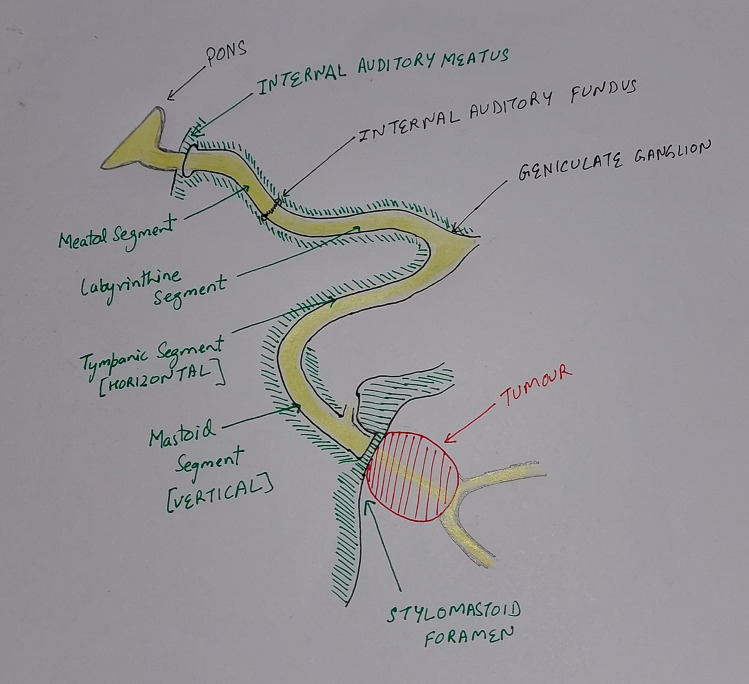 PONS
INTERNAL AUDITORY MEATUS
INTERNAL AUDITORY FUNDUS
GENICULATE GANGLION
Meatal Segment
Labyrinthine
Segment
Tympanic Segment
[HORIZONTAL]
TUMOUR
Mastoid
Segment
[VERTICAL]
STYLOMASTOID
FORAMEN